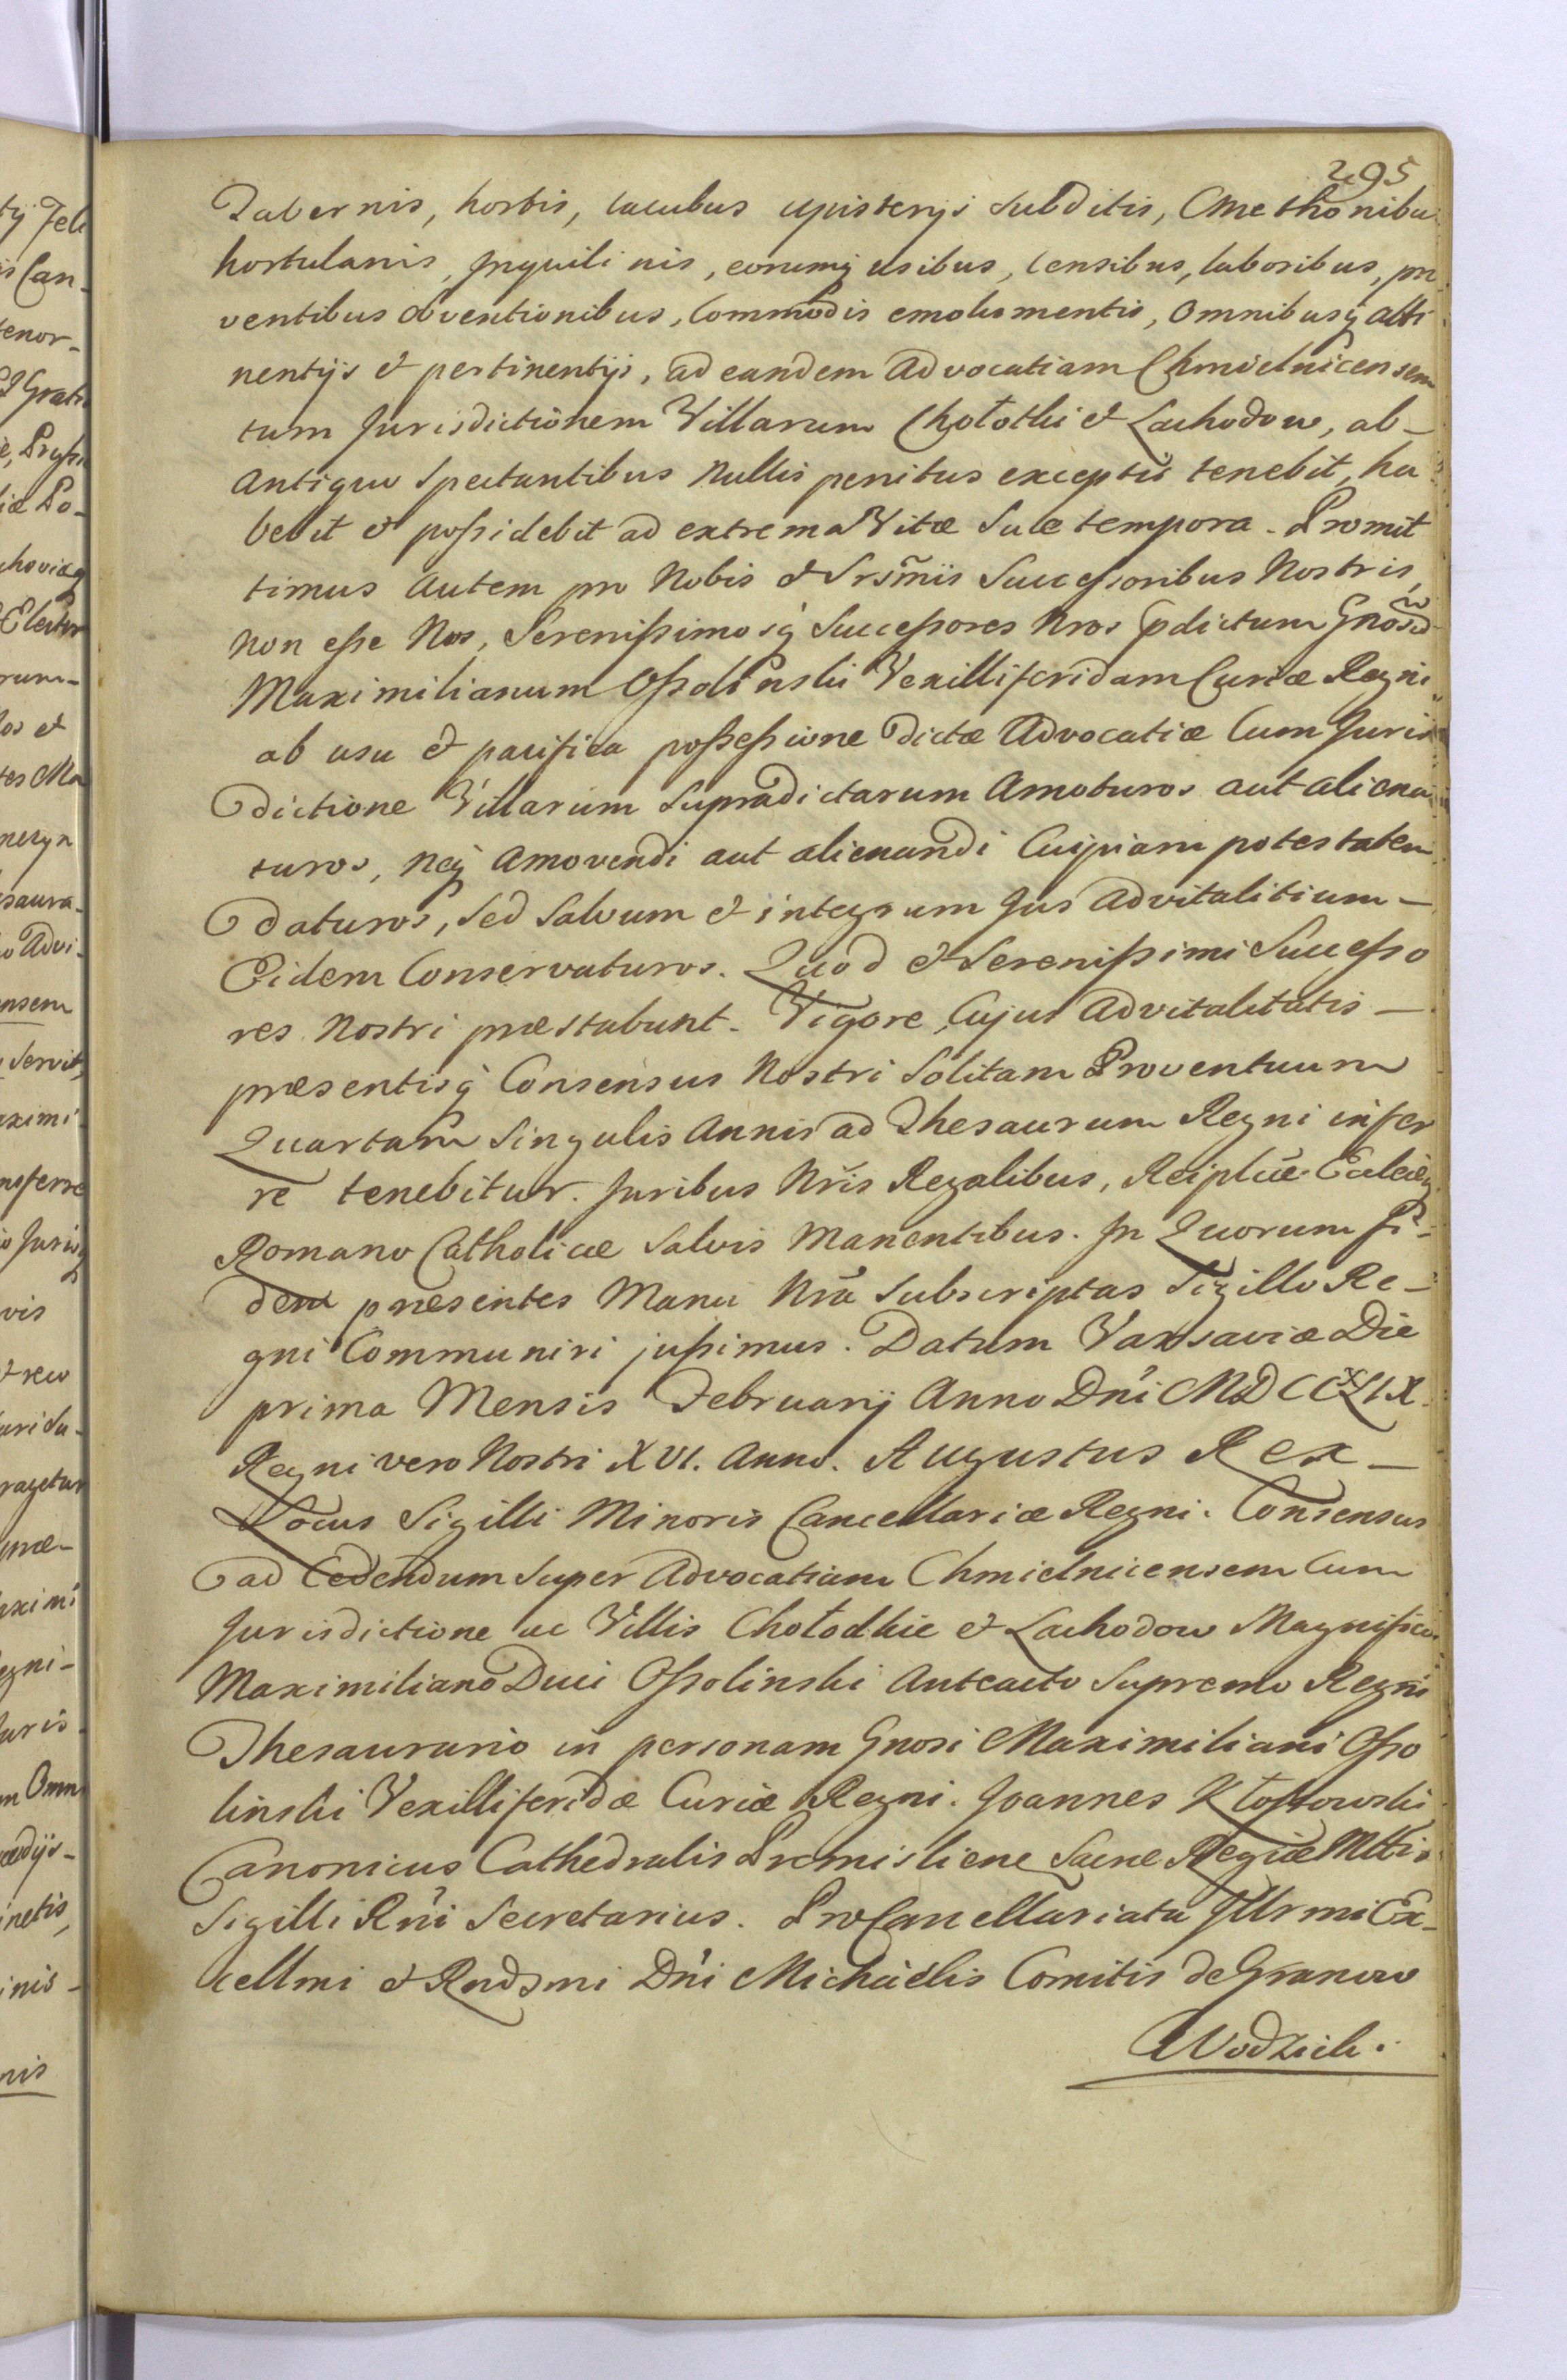 295
Tabernis, hortis, lacubus apisterijs subditis, Cmethonibu
hortulanis, Inquilinis, eorumq usibus, Censibus, laboribus, pro
ventibus obventionibus, Commodis emolumentis, Omnibusq atti
nentijs et pertinentijs, ad eandem Advocatiam Chmielnicensem
tum Jurisdictionem Villarum Chołothi et Lachodow, ab-
Antiquo Spectantibus Nullis penitus exceptis tenebit, ha
bebit et poßidebit ad extrema Vitæ Suæ tempora. Promit
timus Autem pro Nobis et Srsm̃is Succeßoribus Nostris,
Non eße Nos, Serenißimosq Succeßores Nros Pdictum Gnosum
Maximilianum Oßolinski Vexilliferidam Curiæ Regni
ab usu et pacifica poßeßione Dictæ Advocatiæ Cum Juris
dictione Villarum Supradictarum Amoturos aut aliena
turos, Neq Amovendi aut alienandi Cuipiam potestatem
daturos, Sed Salvum et integrum Jus Advitalitium-
Eidem Conservaturos. Quod et Serenißimi Succeßo
res Nostri præstabunt. Vigore Cujus Advitalitatis-
præsentisq Consensus Nostri Solitam Proventuum
Quartam Singulis Annis ad Thesaurum Regni infer
re tenebitur. Juribus Nris Regalibus, Reiplicæ Eccleæq
Romano Catholicæ Salvis Manentibus. In Quorum Fi-
dem præsentes Manu Nra Subscriptas Sigillo Re-
gni Communiri jußimus. Datum Varsaviæ Die
prima Mensis Februarij Anno Dni MDCCXLIX.
Regni vero Nostri XVI. Anno. Augustus Rex-
Locus Sigilli Minoris Cancellariæ Regni. Consensus
ad Cedendum Super Advocatiam Chmielnicensem Cum
Jurisdictione ac Villis Chołodkie et Lachodow Magnifico
Maximiliano Duci Oßolinski Anteacto Supremo Regni
Thesaurario in personam Gnosi Maximiliani Oßo
linski Vexilliferidæ Curiæ Regni. Joannes Kłoßowski
Canonicus Cathedralis Premisliene Sacræ Regiæ Mttis
Sigilli Rni Secretarius. ProCancellariatu Illrmi Ex-
cellmi et Rndsmi Dni Michaelis Comitis de Granow
Wodzicki.